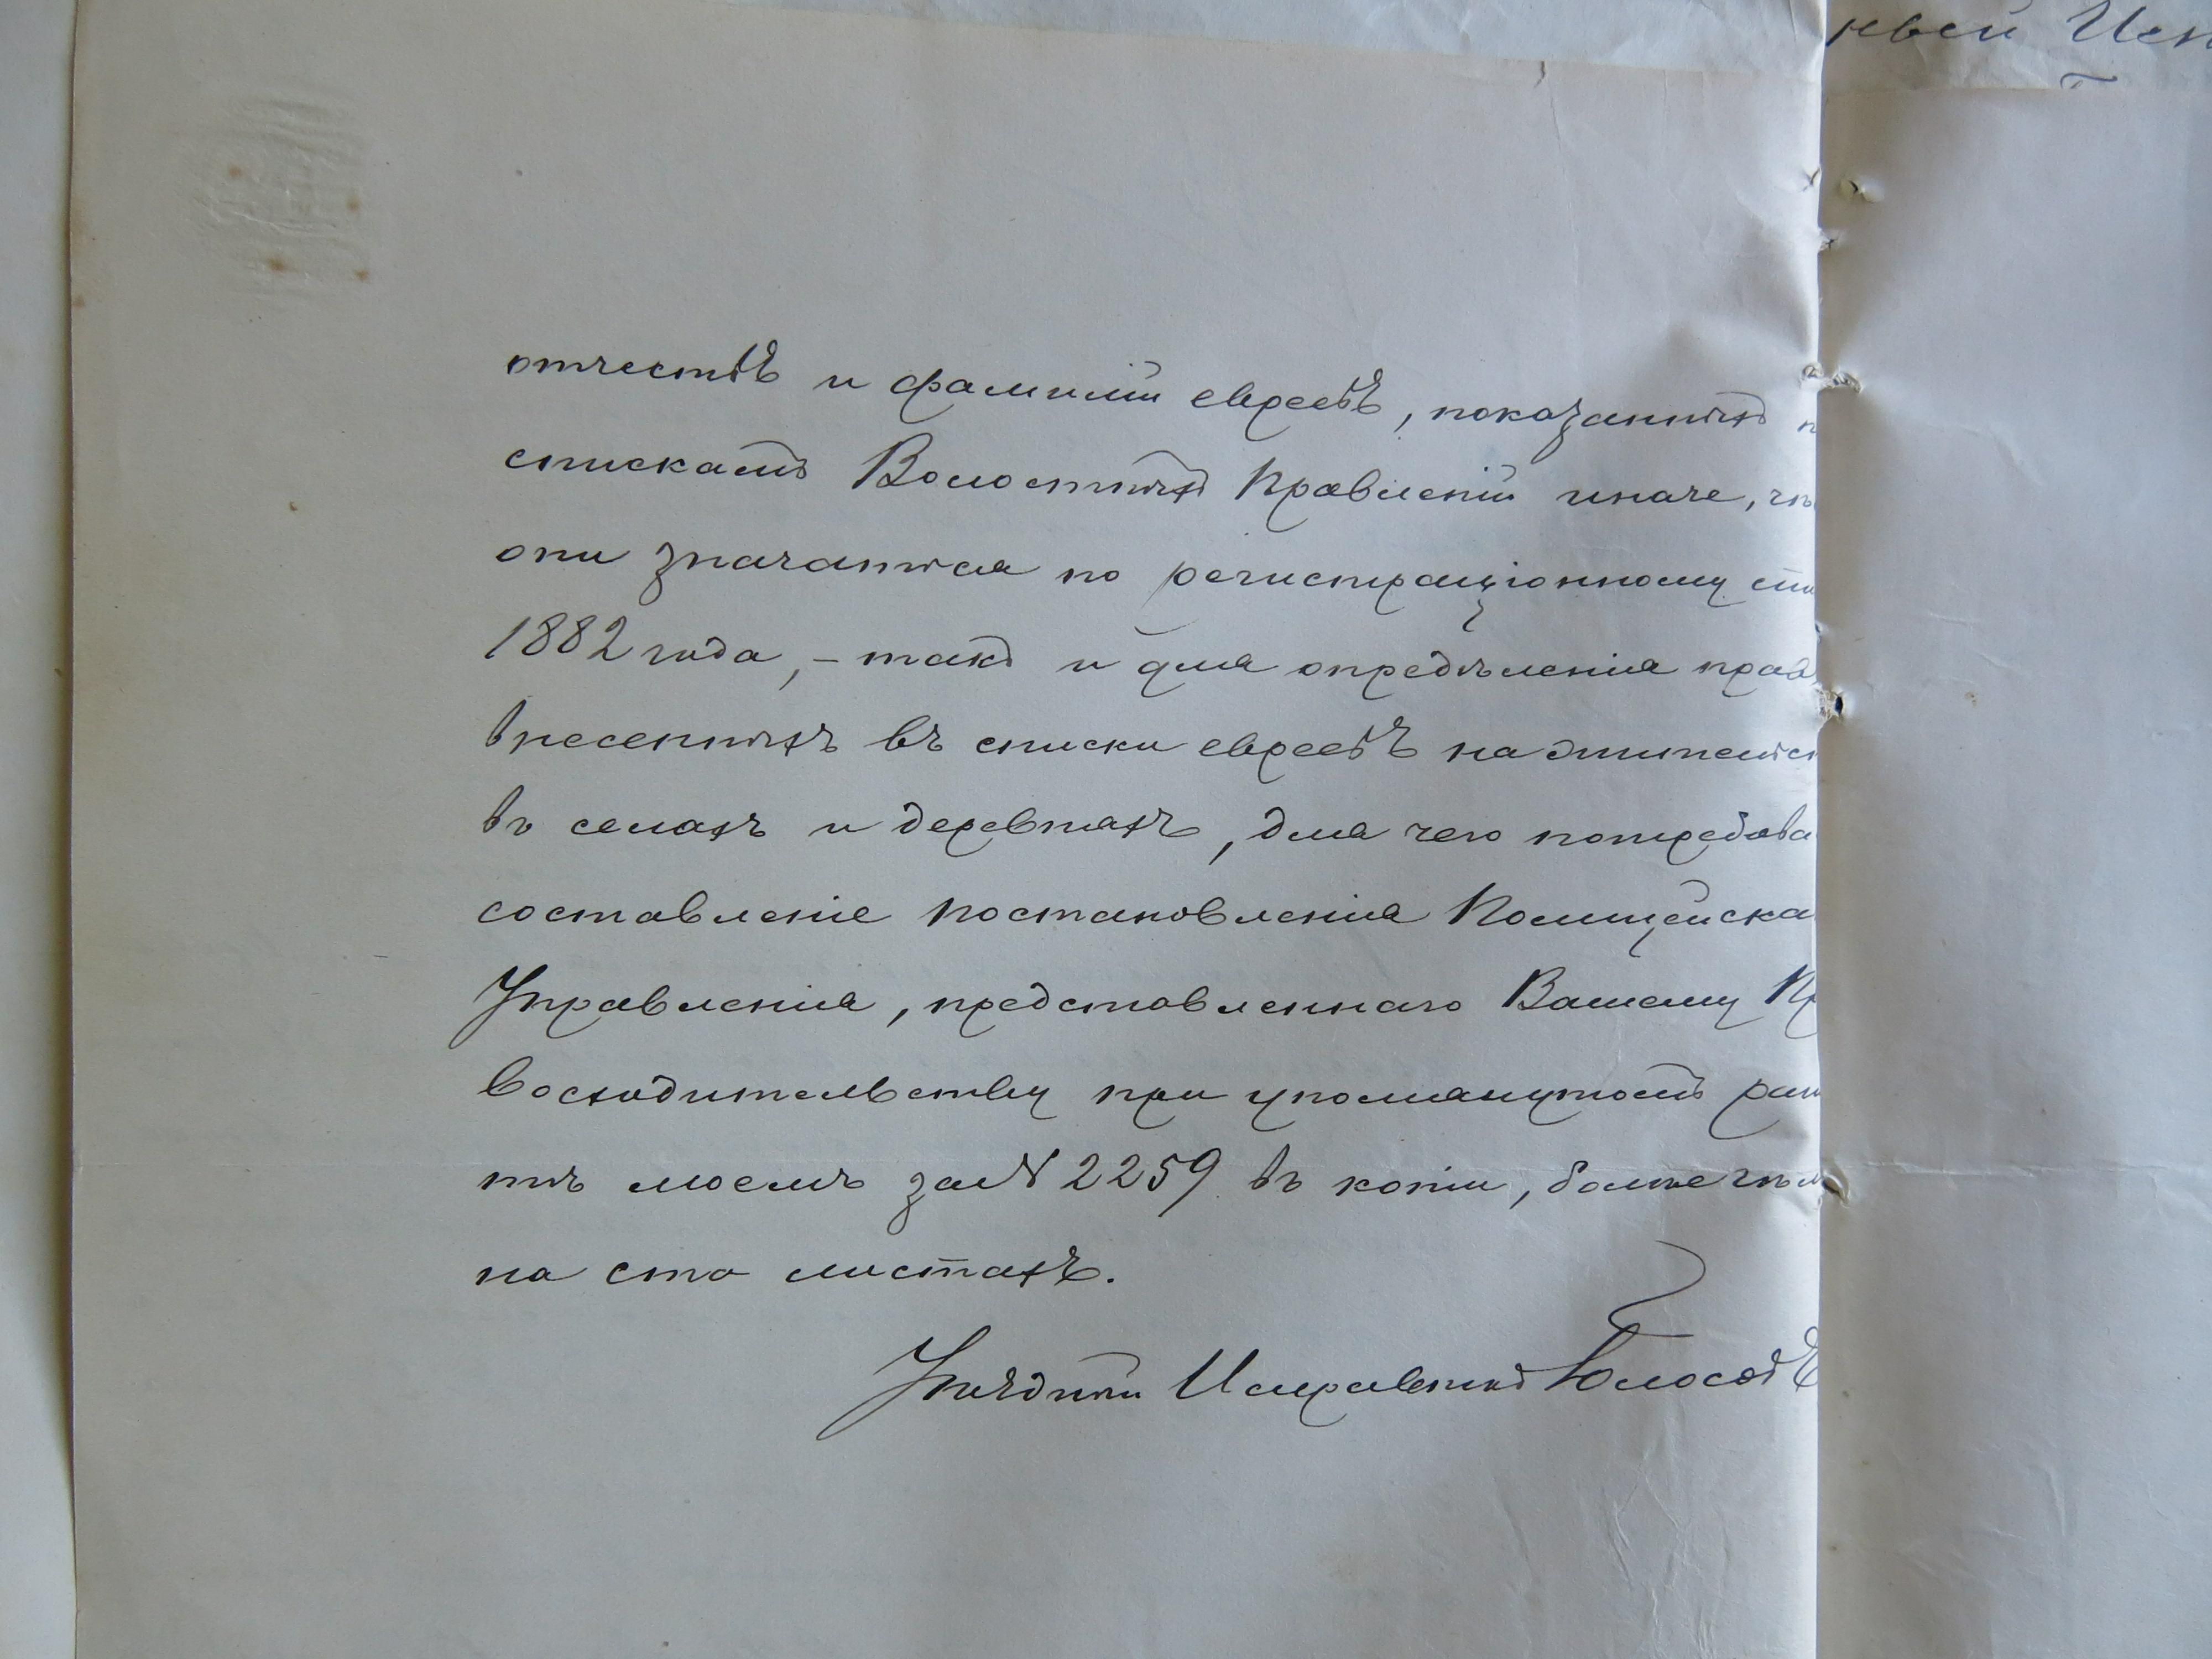 ньій Исп
отчествъ и фамилій евреевъ, показанныхъ п
спискамъ Волостныхъ Правленій иначе, чѣ
они значатся по регистраціонному спи
1882 года, – такъ и для опредѣленія прав
внесенныхъ въ списки евреевъ на жительс
въ селахъ и деревняхъ, для чего потребова
составленіе постановленія Полицейска
Управленія, представленнаго Вашему Пр
восходительству при упомянутомъ рап
тѣ моемъ за № 2259 въ копіи, болѣе чѣм
на ста листахъ.
Уѣздный Исправникъ